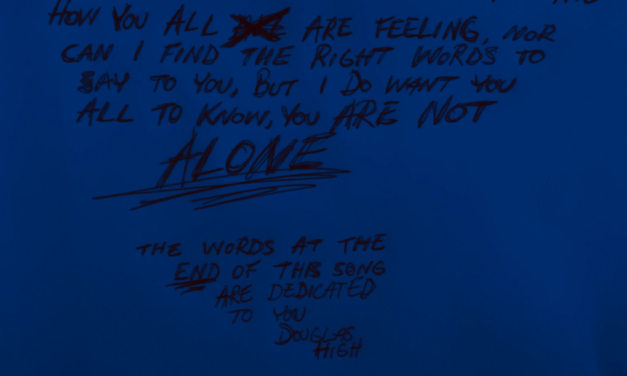 HOW YOU ALL ARE FEELING, NOR
CAN I FIND THE RIGHT WORDS TO
SAY TO YOU, BUT I DO WANT YOU
ALL TO KNOW, YOU ARE NOT
ALONE
THE WORDS AT THE
END OF THIS SONG
ARE DEDICATED
TO YOU
DOUGLAS
HIGH